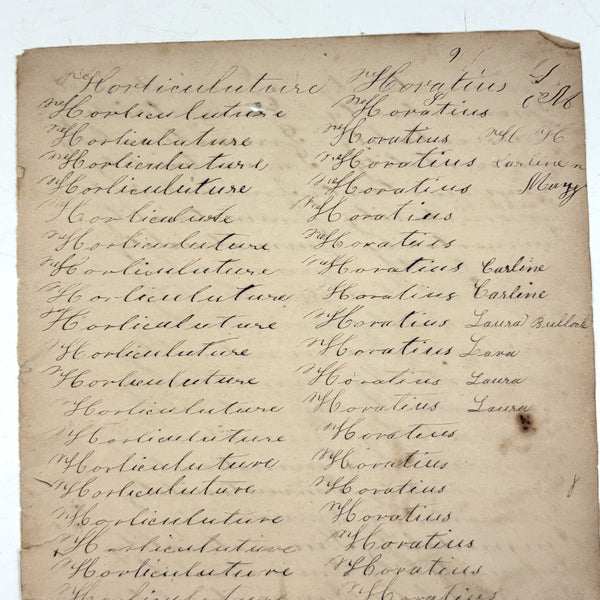 9
Horticuluture Horatius S
Horticuluture Horatius M
Horticuluture Horatius H H
Horticuluture Horatius Carline n
Horticuluture Horatius Mary
Horticulute Horatius
Horticuluture Horatius
Horticuluture Horatius Carline
Horticuluture Horatius Carline
Horticuluture Horatius Laura Bullock
Horticuluture Horatius Lara
Horticuluture Horatius Laura
Horticuluture Horatius Laura
Horticuluture Horatius
Horticuluture Horatius
Horticuluture Horatius
Horticuluture Horatius
Horticuluture Horatius
Horticuluture Horatius
Horticuluture Horatius